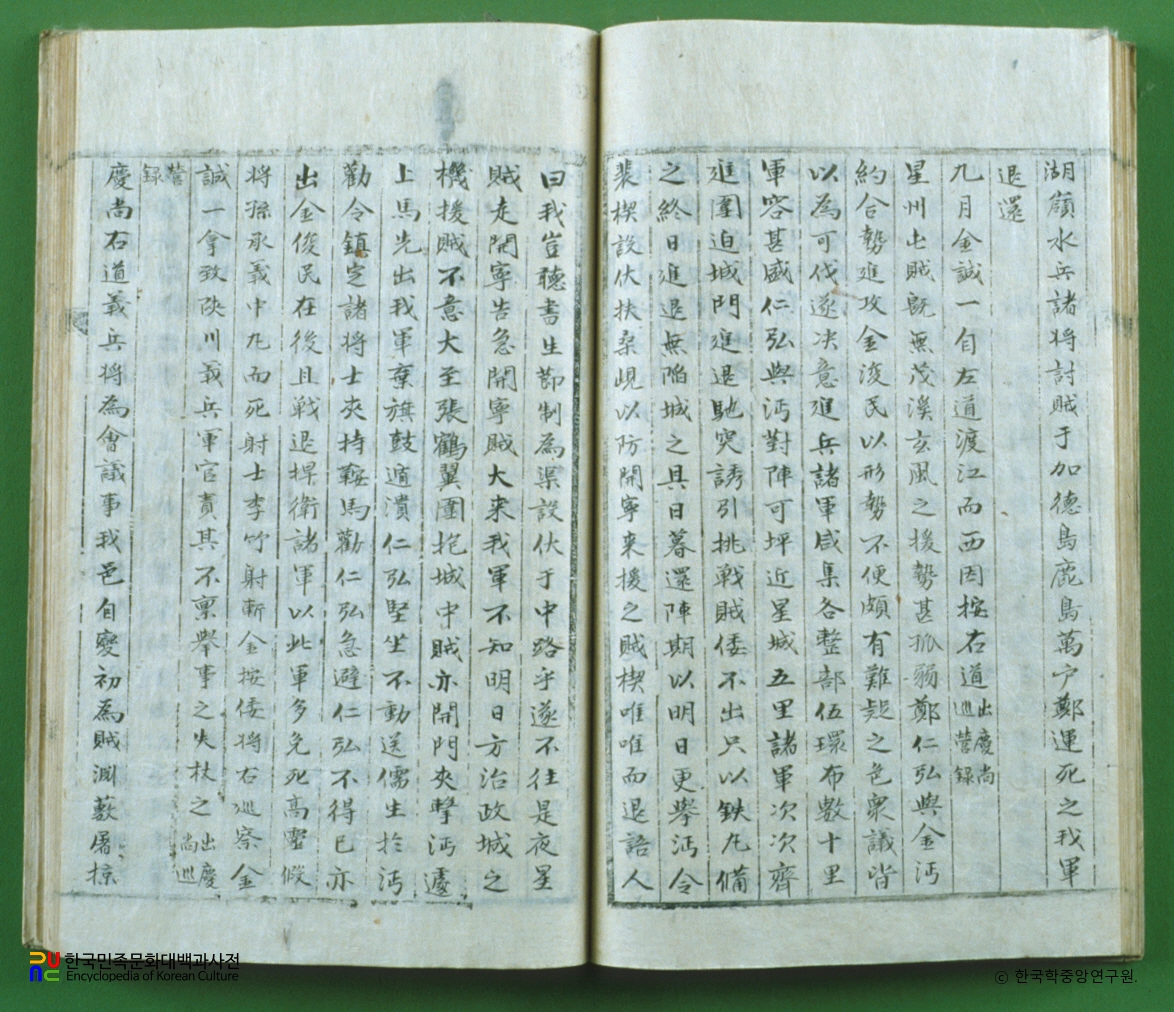 湖嶺水兵諸將討賊于加德島鹿島萬戶鄭運死之我軍
退還
九月金誠一自左道渡江而西因按右道出慶尚巡營錄
星州屯賊旣無茂溪玄風之援勢甚孤弱鄭仁弘與金沔
約合勢進攻金浚民以形勢不便頗有難㝎之色衆議皆
以為可伐遂决意進兵諸軍咸集各整部伍環布數十里
軍容甚盛仁弘與沔對陣可坪近星城五里諸軍次次齊
進圍迫城門進退馳突誘引挑戰賊倭不出只以鉄丸備
之終日進退無陷城之具日暮還陣期以明日更舉沔令
裴楔設伏扶桑峴以防開寧來援之賊楔唯唯而退語人
曰我豈聽書生節制為渠設伏于中路乎遂不往是夜星
賊走開寧告急開寧賊大来我軍不知明日方治政城之
機援賊不意大至張鶴翼圍抱城中賊亦開門夾擊沔遽
上馬先出我軍棄旗鼓遁潰仁弘堅坐不動送儒生於沔
勸令鎮定諸將士夾持鞍馬勸仁弘急避仁弘不得已亦
出金俊民在後且戰退捍衛諸軍以此軍多免死高靈假
將孫承義中丸而死射士李竹射斬金按倭將右巡察金
誠一拿致陜川義兵軍官責其不禀舉事之失杖之出慶尚巡
營錄
慶尚右道義兵將為會議事我邑自變初為賊淵藪屠掠
한국민족문화대백과사전
Encyclopedia of Korean Culture
ⓒ 한국학중앙연구원.